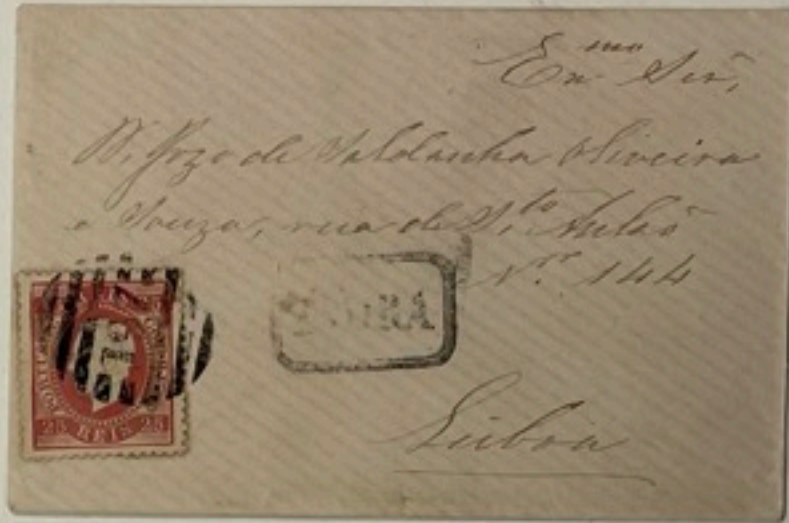 Exmo Snr,
D. Jozé de Saldanha Oliveira
e Souza, rua de Sto Antão
Nro 144
Lisboa
25 REIS 25